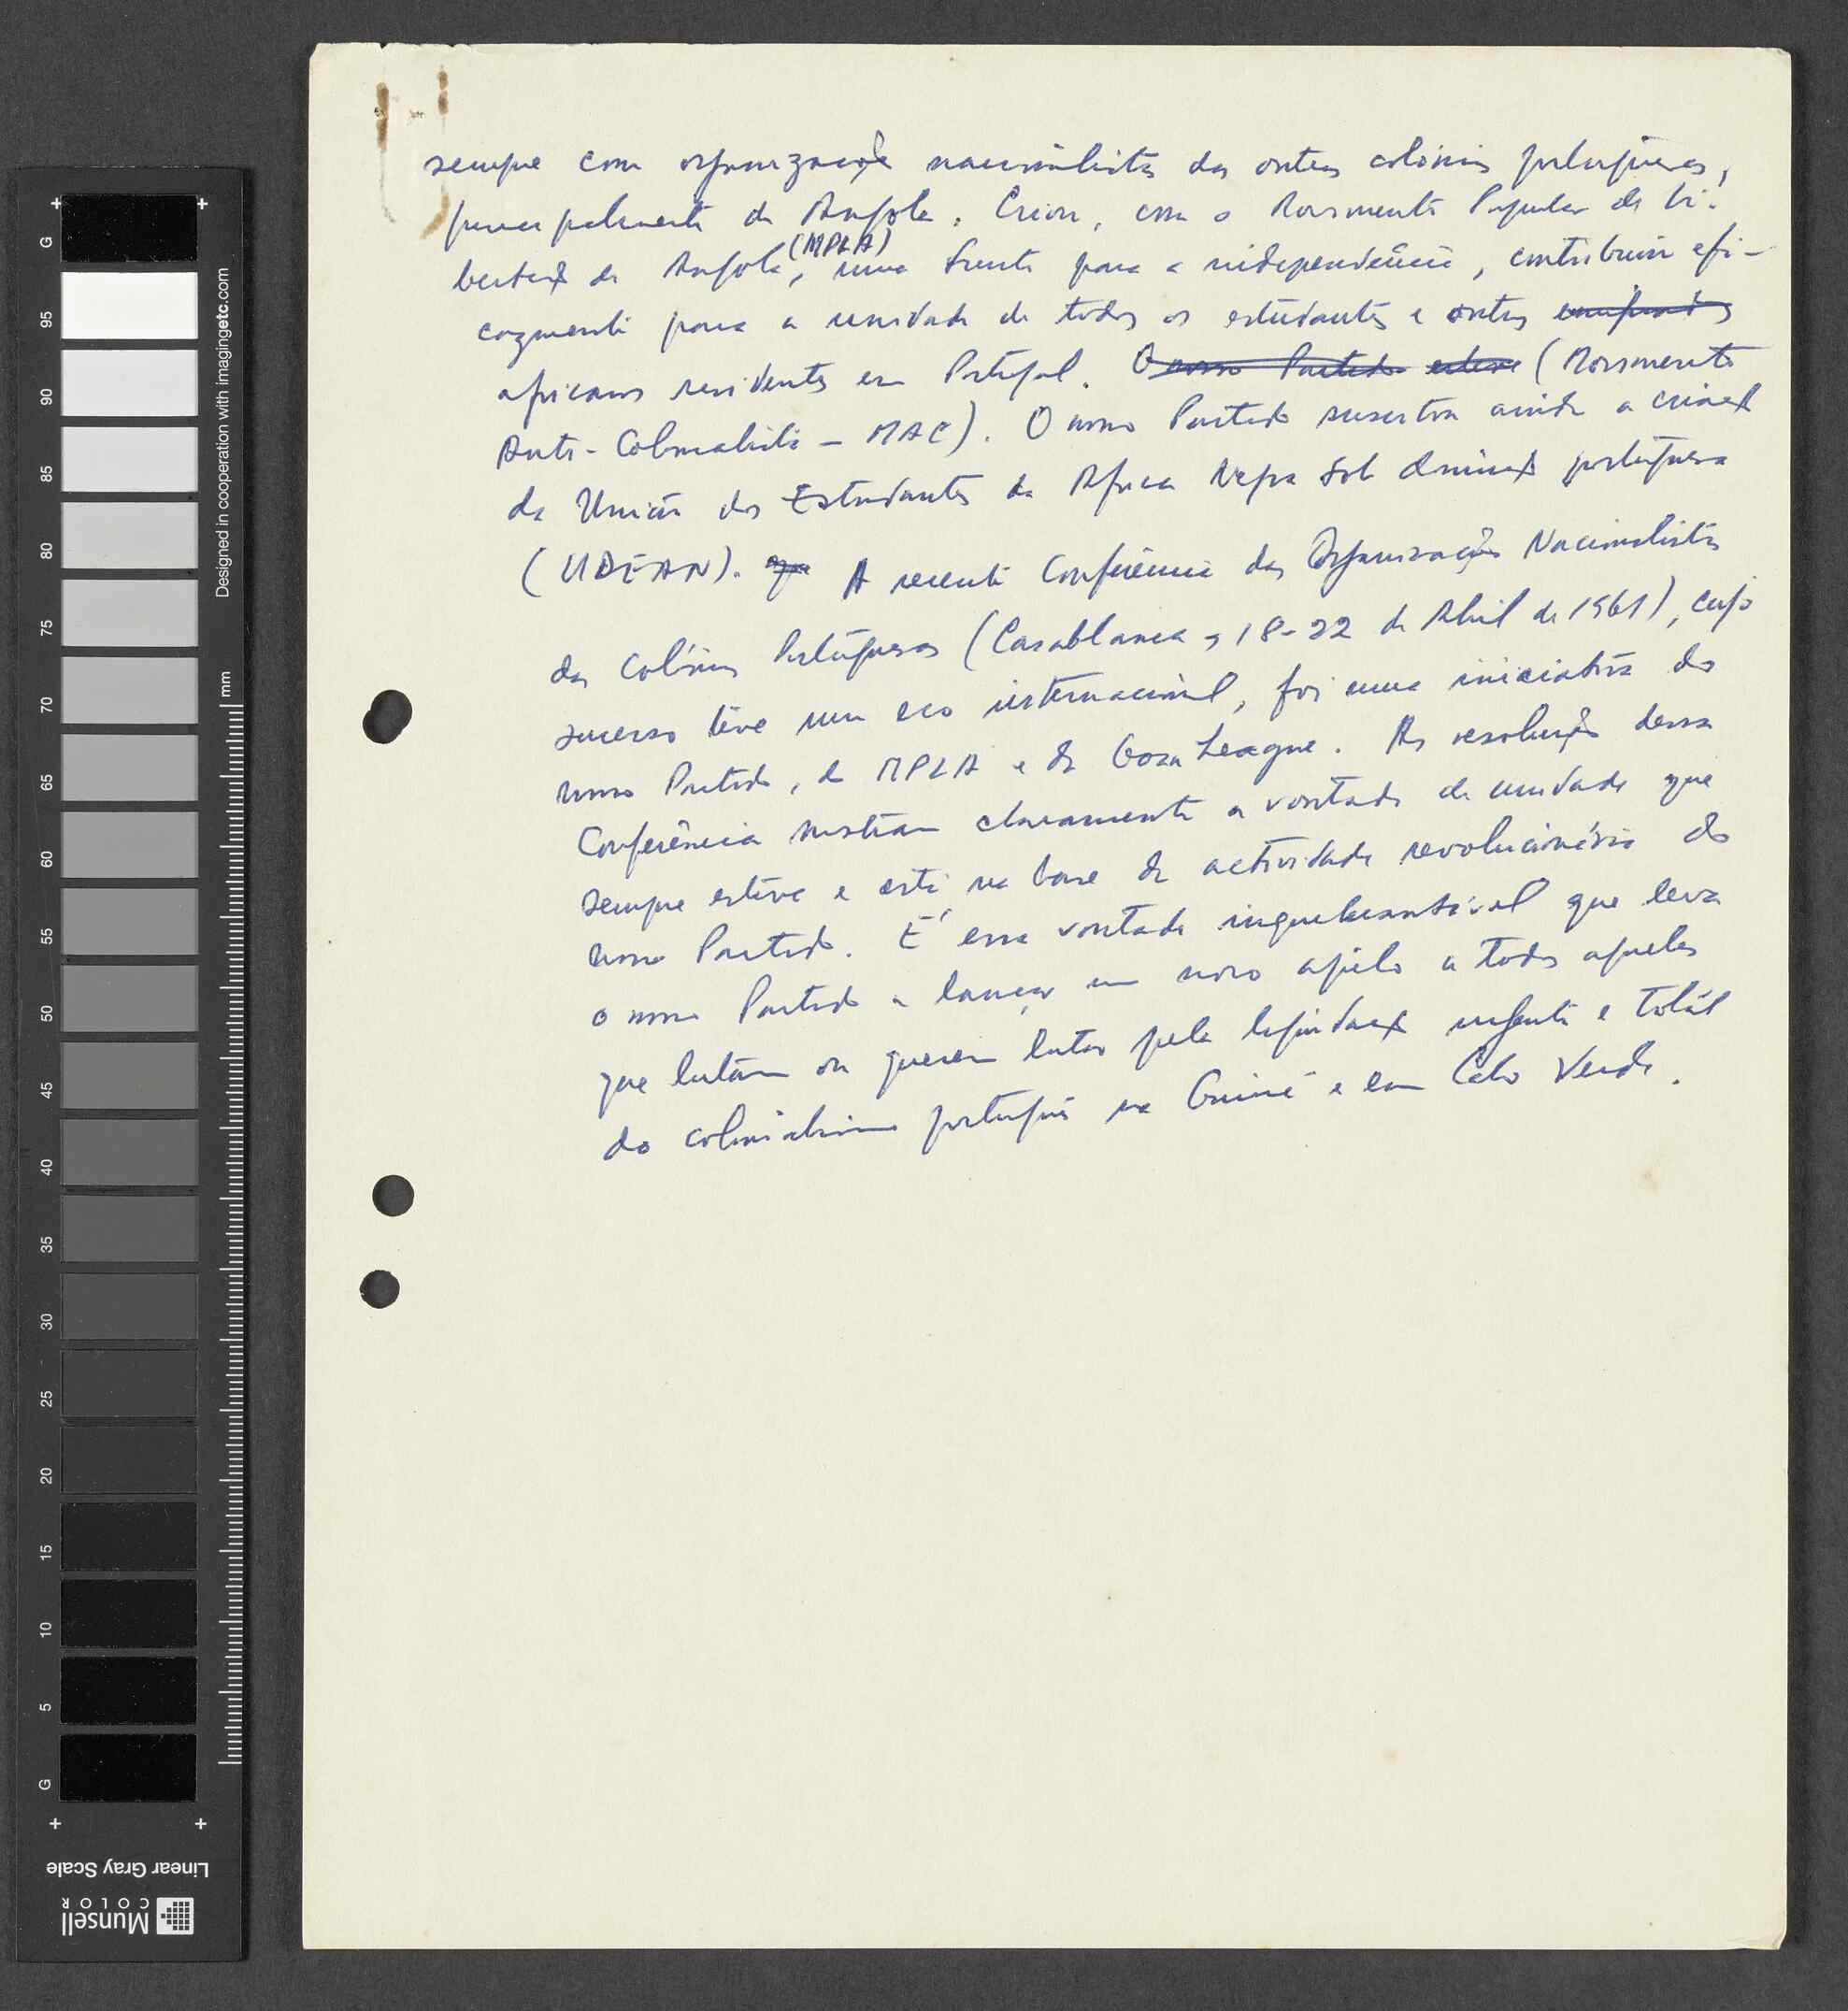 sempre com organizações nacionalistas das outras colónias portuguesas,
principalmente de Angola. Criou, com o Movimento Popular de Li-
bertação de Angola (MPLA), uma frente para a independência, contribuiu efi-
cazmente para a unidade de todos os estudantes e outros
africanos residentes em Portugal. O nosso Partido esteve (Movimento
Anti-Colonialista — MAC). O nosso Partido suscitou ainda a criação
da União dos Estudantes da Africa Negra sob dominação portuguesa
(UDEAN). que A recente Conferência das Organizações Nacionalistas
das Colónias Portuguesas (Casablanca, 18-22 de Abril de 1961), cujo
sucesso teve um eco internacional, foi uma iniciativa do
nosso Partido, do MPLA e da Goa League. As resoluções dessa
Conferência mostram claramente a vontade de unidade que
sempre esteve e está na base da actividade revolucionária do
nosso Partido. É essa vontade inquebrantável que leva
o nosso Partido a lançar um novo apêlo a todos aqueles
que lutam ou querem lutar pela liquidação urgente e total
do colonialismo português na Guiné e em Cabo Verde.
G 95 90 85 80 75 70 65 60 55 50 45 40 35 30 25 20 15 10 5 G
mm
Designed in cooperation with imagingetc.com
Linear Gray Scale
Munsell
COLOR